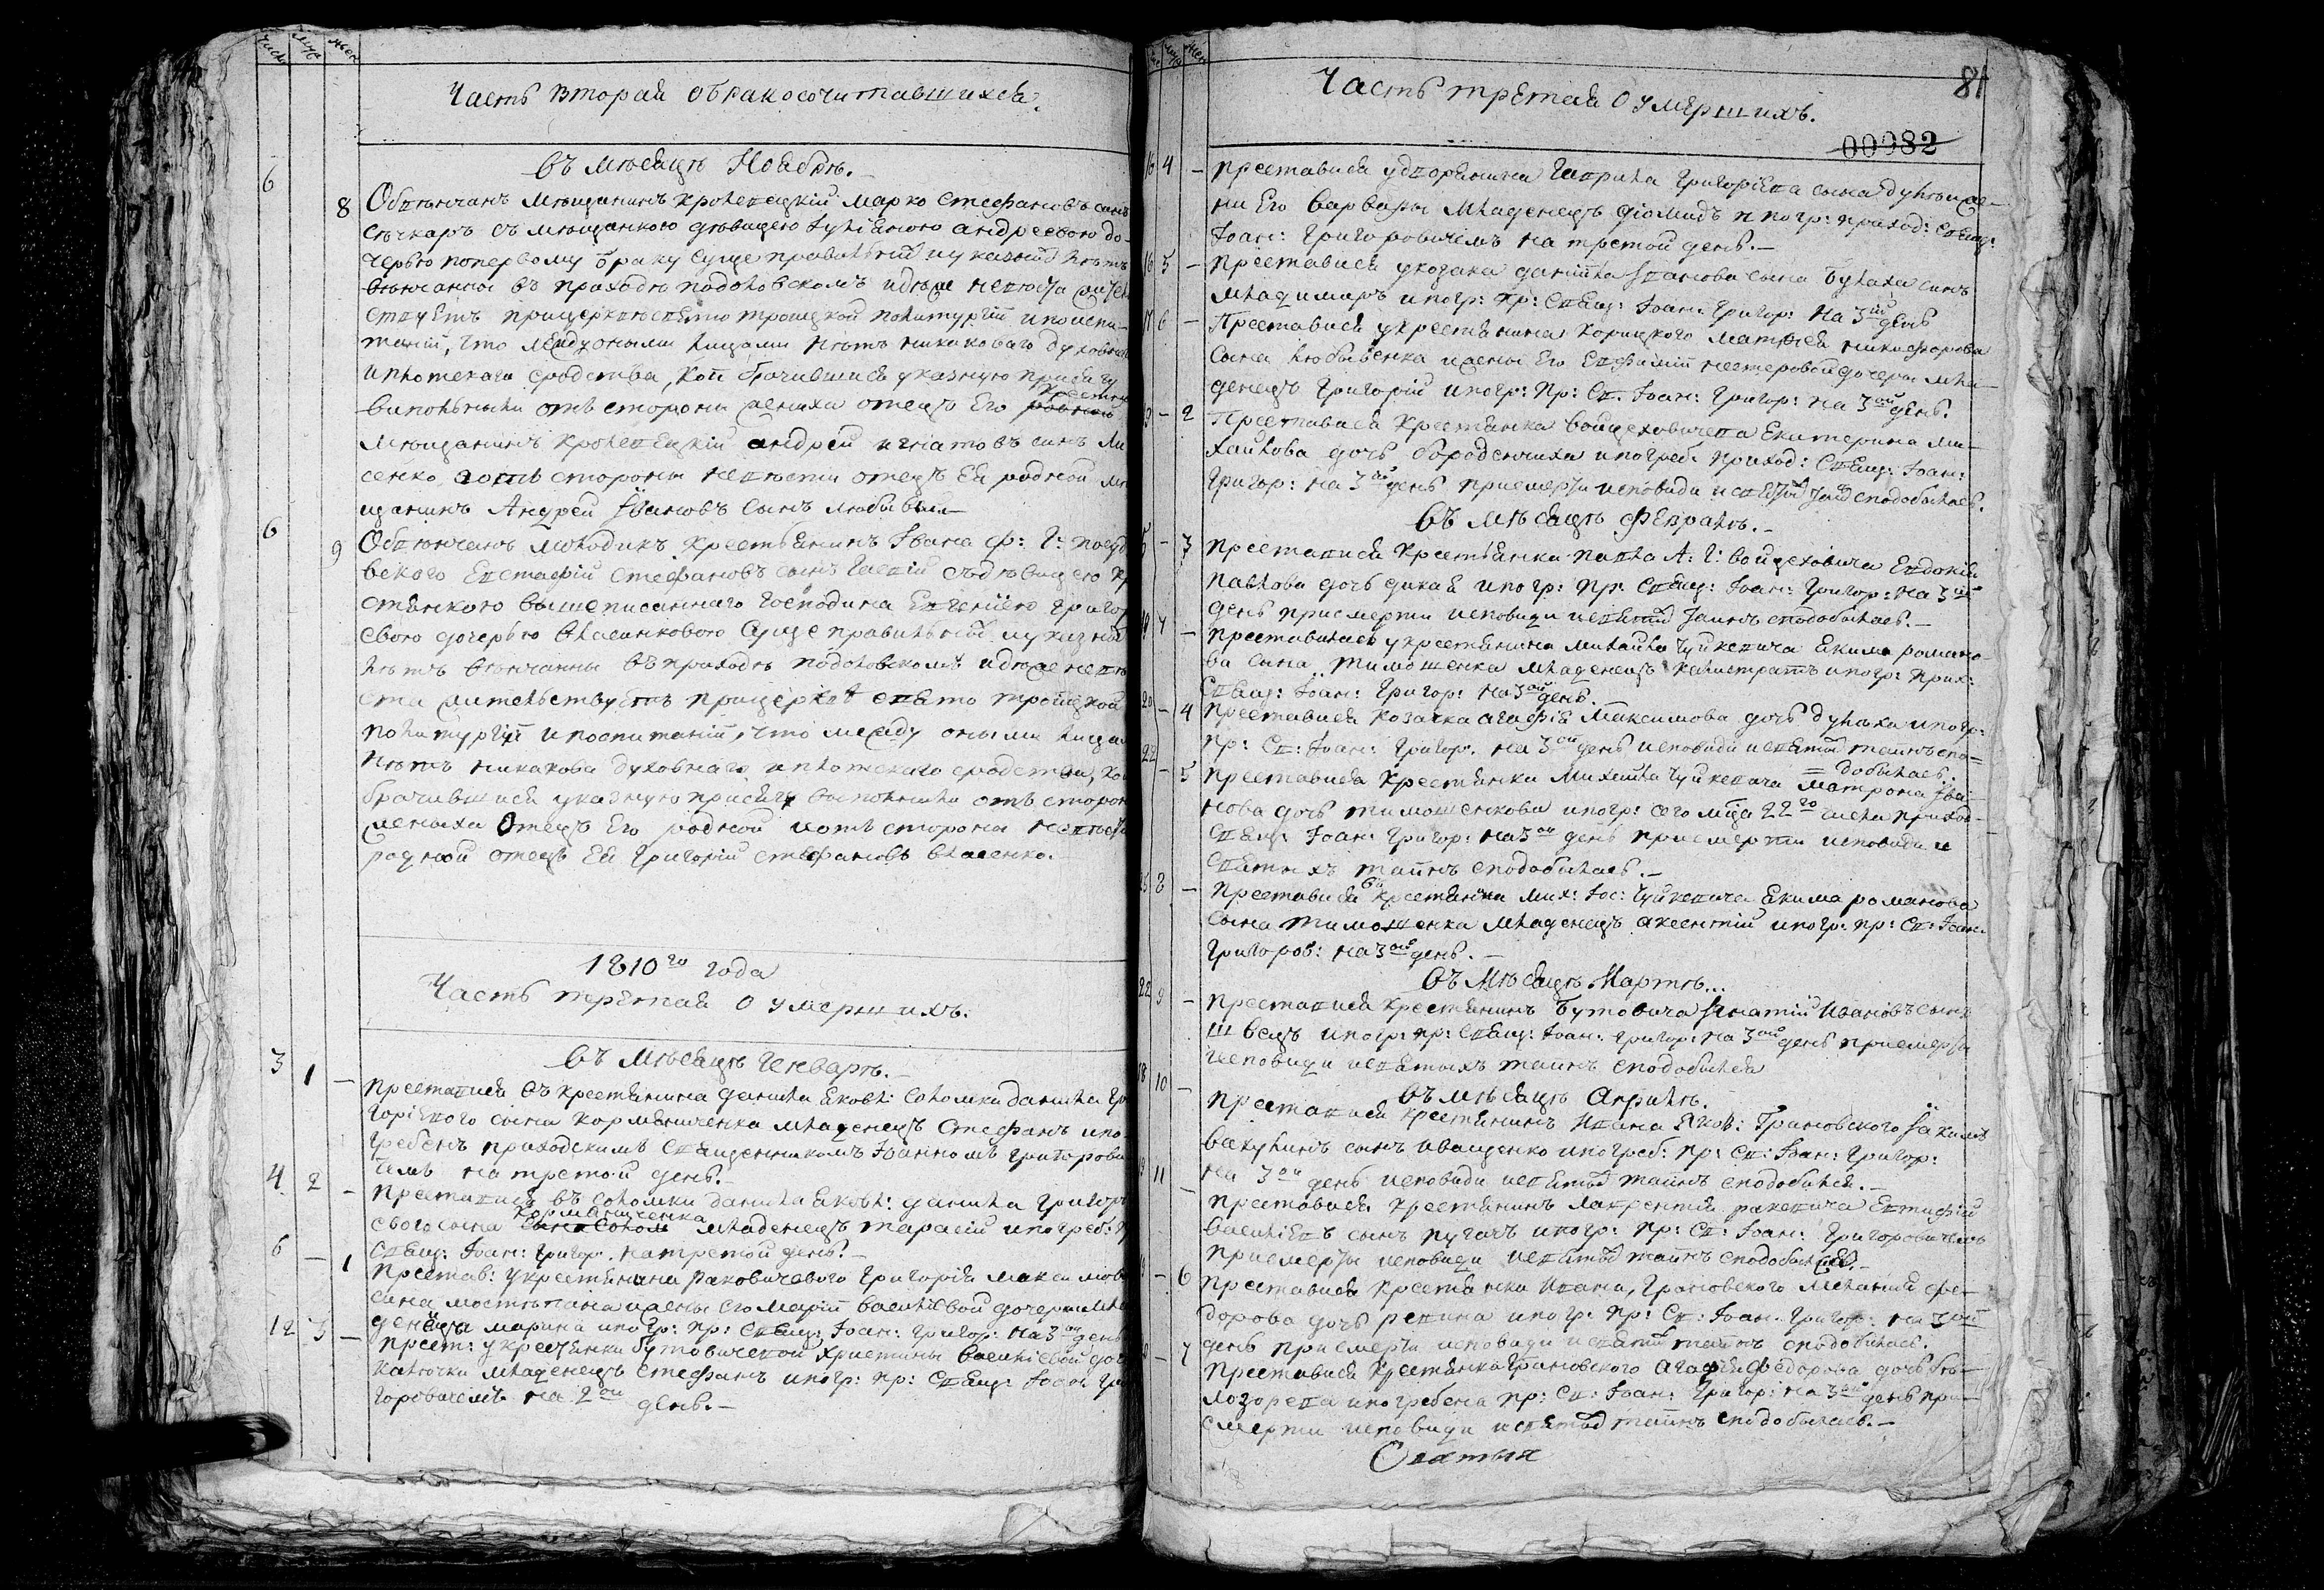 Часть вторая о бракосочитавшихся.
Въ мѣсяцѣ Ноябрѣ.
6
8 Обвѣнчанъ мѣщанинъ Кролевецкій Марко Стефановъ синъ
Сѣчкаръ съ мѣщанкою дѣвицею Андреевою до-
черью попервому браку
вѣнчанны въ приходѣ подоловскомъ идѣже невѣста жител
ствуетъ прицеркви свято троицкой политургіи ипоиспи-
таніи, что между оными лицами нѣтъ никаковаго духовна
иплотскаго сродства, кои брачившися указную присягу
виполныли отъ сторони жениха отецъ Его
мѣщанинъ Кролевецкій Андрей Игнатовъ синъ Ли
сенко, аотъ стороны невѣсти отецъ Ея родной мѣ
щанинъ Андрей Ивановъ сынъ
6
9 Обвѣнчанъ молодикъ крестьянинъ Ивана Ф: Г:
вского Евстафій Стефановъ сынъ съдѣвицею кр
стянкою вышеписаннаго господина Евгеніею Григор
евою дочерью Власенковою
нѣтъ вѣнчанны въприходѣ подоловскомъ идѣже невѣ
ста жителствуетъ прицерквѣ свято троицкой
полтургіи ипоспитаніи, что между оными лицам
нѣтъ никакова духовнаго иплотскаго сродства, кои
брачившися указную присягу выполныли отъ сторон
жениха Отецъ Его родной иотъ стороны невѣсти
родной отецъ Ея Григорій Стефановъ Власенко.
1810го года
Часть третая о умершихъ.
Въ мѣсяцѣ Генварѣ.
3 1 — Преставися въ крестянина Данила Яковл: Соломки Данила Гри
горіевого сына Корманиченка младенецъ Стефанъ ипо
гребенъ приходскимъ священникомъ Іоанномъ Григорови
чемъ на третой день.
4 2 — Преставися въ Соломки Данила Яковл: Данила Григорі
евого сына Корманиченка младенецъ Тарасій ипогреб: пр
свящ: Іоан: Григор: натретой день.
6 — 1 Престав: укрестянина Раковичевого Григорія Максимова
сина ижены его Маріи Василіевой дочери мла
денецъ Марина ипогр: пр: свящ: Іоан: Григор: на 3ой день
12 3 — Прест: укрестянки Бутовичевой Христины Василіевой доч
младенецъ Стефанъ ипогр: пр: свящ: Іоан: Гри
горовичемъ на 2ой день.—
Часть третая о умершихъ.
81
00982
16 4 — Преставися удворянина Гаврила Григоріева сына
ны его Варвары младенецъ Діомидъ и погр: приход: свящ:
Іоан: Григоровичемъ на третой день.—
16 5 — Преставися укозака Даніила Іванова сына синъ
Младимаръ ипогр: пр: свящ: Іоан: Григор: на 3ій день
17 6 — Преставися укрестянина Корицкого Матвея Никифорова
сына ижены его Евфиміи Нестеровой дочеры мла-
денецъ Григорій ипогр: пр: св. Іоан: Григор: на 3ой день.
— 2 Преставися крестянка Войцеховичева Екатерина Ми-
хайлова дочь ипогреб: приход: свящ: Іоан:
Григор: на 3ой день присмерти исповиди исвятыхъ таинъ сподобилась.
Въ мѣсяцѣ Февралѣ.
— 3 Преставися крестьянка Павла А: Г: Войцеховича Евдокія
Павлова дочь дикая ипогр: пр: свящ: Іоан: Григор: на 3ій
день присмерти исповиди исвятыхъ таинъ сподобилась.—
7 — Преставилась укрестянина Михайла Чуйкевича Екима Романо-
ва сына Тимошенка младенецъ Калистратъ ипогр: прих:
свящ: Іоан: Григор: на3ой день.
20 — 4 Преставися козачка Агафія Максимова дочь ипогр:
пр: св: Іоан: Григор: на 3ой день исповиди исвятыхъ таинъ спо=
=добилась.
22 — 5 Преставися крестянки Михайла Чуйкевича Матрона Іва-
нова дочь Тимошенкова ипогр: сего мца 22го числа приход-
свящ: Іоан: Григор: на3ой день присмерти исповиди и
святыхъ таинъ сподобилась.—
25 8 — Преставися въ крестянина Мих: Іос: Чуйкевича Екима Романова
сына Тимошенка младенецъ Аксентій ипогр: пр: св: Іоан:
Григоров: на 3ой день.—
Въ мѣсяцѣ Мартѣ...
22 9 — Преставися крестянинъ Бутовича Игнатій Ивановъ сынъ
Швецъ ипогр: пр: свящ: Іоан: Григор: на 3ой день присмерти
исповиди исвятыхъ таинъ сподобился
Въ мѣсяцѣ Априлѣ.
18 10 — Преставися крестянинъ Ивана Яков: Грановского Іакимъ
Вакулинъ сынъ Иващенко ипогреб: пр: св: Іоан: Григор:
на 3ой день исповиди исвятыхъ таинъ сподобился.—
11 — Преставися крестянинъ Лаврентія Ракевича Евтифій
Василіевъ сынъ Пугачъ ипогр: пр: св: Іоан: Григоровичемъ
присмерты исповиди исвятыхъ таинъ сподобился.—
— 6 Преставися крестянка Ивана, Грановского Меланія Фе-
дорова дочь ипогр: пр: св: Іоан: Григор: на 3ой
день присмерти исповиди исвятыхъ таинъ сподобилась.
— 7 Преставися крестянка Грановского Агафія Федорова дочь Бѣ-
лозорева ипогребена пр: св: Іоан: Григор: на 3ой день при-
смерти исповиди исвятыхъ таинъ сподобилась.—